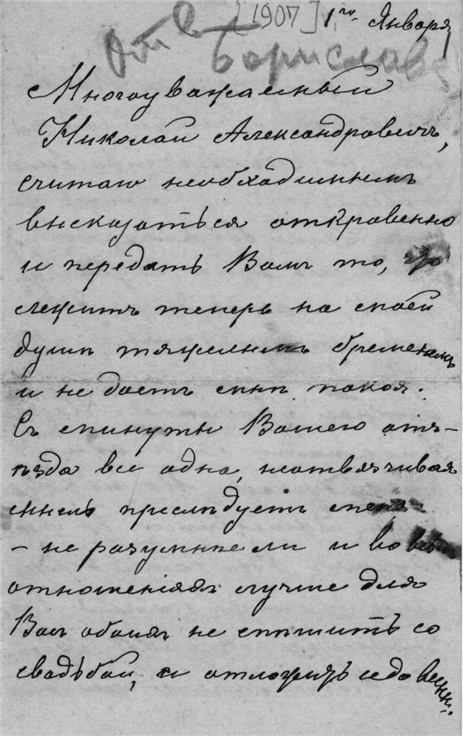 [1907] 1го Января
От Е Борислав
Многоуважаемый
Николай Александровичъ,
считаю необходимымъ
высказаться откровенно
и передать Вамъ то, что
лежитъ теперь на моей
душѣ тяжелымъ бременемъ
и не даетъ мнѣ покоя.
Съ минуты Вашего отъ-
ѣзда все одна, неотвязчивая
мысль преслѣдуетъ меня
- не разумнѣе ли и во всѣхъ
отношеніяхъ лучше для
Васъ обоихъ не спѣшить со
свадьбой, а отложить её до весны.